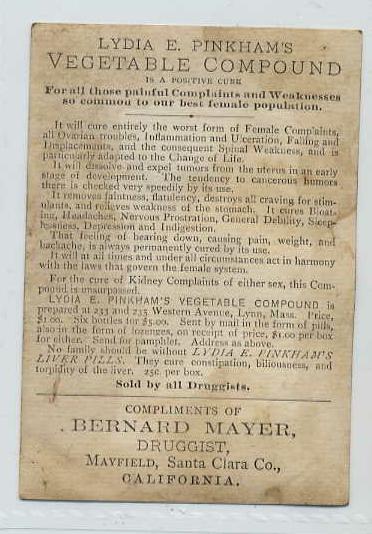 LYDIA E. PINKHAM'S
VEGETABLE COMPOUND
IS A POSITIVE CURE
For all those painful Complaints and Weaknesses
so common to our best female population.
It will cure entirely the worst form of Female Complaints,
all Ovarian troubles, Inflammation and Ulceration, Falling and
Displacements, and the consequent Spinal Weakness, and is
particularly adapted to the Change of Life.
It will dissolve and expel tumors from the uterus in an early
stage of development. The tendency to cancerous humors
there is checked very speedily by its use.
It removes faintness, flatulency, destroys all craving for stim-
ulants, and relieves weakness of the stomach. It cures Bloat-
ing, Headaches, Nervous Prostration, General Debility, Sleep-
lessness, Depression and Indigestion.
That feeling of bearing down, causing pain, weight, and
backache, is always permanently cured by its use.
It will at all times and under all circumstances act in harmony
with the laws that govern the female system.
For the cure of Kidney Complaints of either sex, this Com-
pound is unsurpassed.
LYDIA E. PINKHAM'S VEGETABLE COMPOUND is
prepared at 233 and 235 Western Avenue, Lynn, Mass. Price,
$1.00. Six bottles for $5.00. Sent by mail in the form of pills,
also in the form of lozenges, on receipt of price, $1.00 per box
for either. Send for pamphlet. Address as above.
No family should be without LYDIA E. PINKHAM'S
LIVER PILLS. They cure constipation, biliousness, and
torpidity of the liver. 25c. per box.
Sold by all Druggists.
COMPLIMENTS OF
BERNARD MAYER,
DRUGGIST,
MAYFIELD, Santa Clara Co.,
CALIFORNIA.